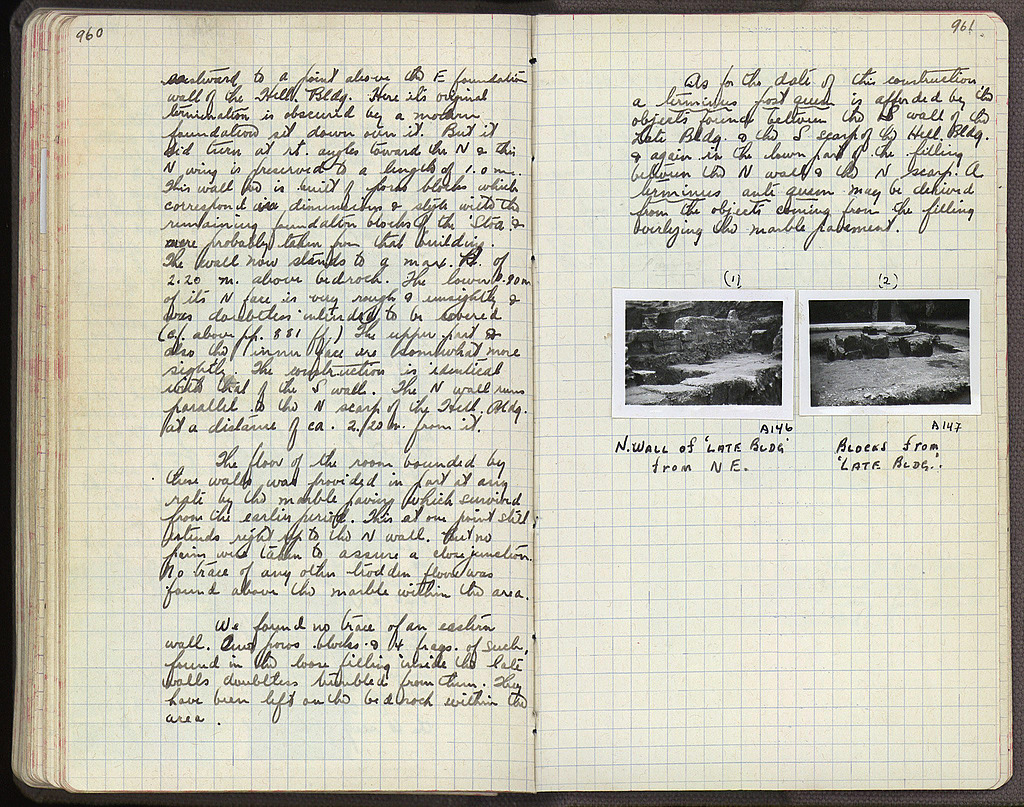 960
eastward to a point above the E foundation
wall of the Hell. Bldg. Here its original
termination is obscured by a modern
foundation set down over it. But it
did turn at rt. angles toward the N & this
N wing is preserved to a length of 1.0 m.
This wall too is built of poros blocks which
correspond in dimensions & style with the
remaining foundation blocks of the 'Stoa' &
were probably taken from that building.
The wall now stands to a max. ht. of
2.20 m. above bedrock. The lower 0.90 m
of its N face is very rough & unsightly &
was doubtless intended to be covered
(cf. above pp. 881 ff.) The upper part &
also the inner face are somewhat more
sightly. The construction is identical
with that of the S wall. The N wall runs
parallel to the N scarp of the Hell. Bldg.
at a distance of ca. 2.20 m. from it.
The floor of the room bounded by
these walls was provided in part at any
rate by the marble paving which survived
from the earlier period. This at one point still
extends right up to the N wall. But no
pains were taken to assure a close junction.
No trace of any other trodden floor was
found above the marble within the area.
We found no trace of an eastern
wall. poros blocks & 4 frags. of such,
found in the loose filling inside the late
walls doubtless tumbled from them. They
have been left on the bedrock within the
area.
961.
As for the date of this construction
a terminus post quem is afforded by the
objects found between the S wall of the
Late Bldg. & the S scarp of the Hell. Bldg.
& again in the lower part of the filling
between the N wall & the N scarp. A
terminus ante quem may be derived
from the objects coming from the filling
overlying the marble pavement.
(1) (2)
A146 A147
N. WALL OF 'LATE BLDG'
from N E.
BLOCKS from
'LATE BLDG'.